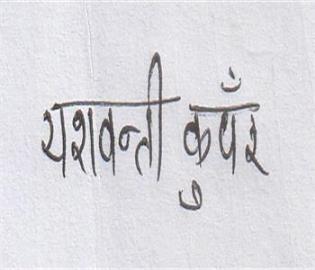 यशवन्ती कुवँर